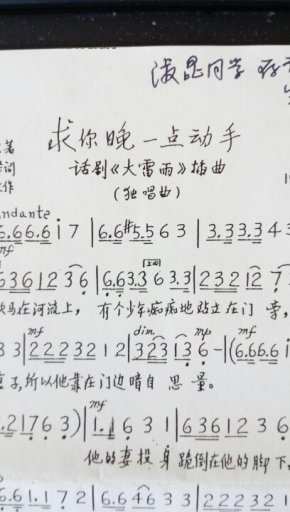 淑昆同学 存
求你晚一点动手
著
话剧《大雷雨》插曲
词
作 (独唱曲)
Andante
6.6 6.6 i 7 | 6.6 #5.5 6 3 | 3.3 3.3 4 3
mf
3 6 3 6 1 2 3 6 | 6.6 3.3 6 3.3 | 2 3 2 1 2 7
马在河流上， 有个少年痴痴地站立在门 旁，
mf dim. mp mf
3 3 | 2 2 2 3 2 1 2 | 3 2 3 1 3 6 - | (6.6 6.6 i
子,所以他靠在门边暗自 思 量。
mf
.2 1 7 6 3) | 1. 1 6 3 1 | 6 3 6 1 2 3 6
他的妻投 身 跪倒在他的脚 下,
6.6 1.1 7 2 | 6.6 4 6 3 3 | 2 2 2 3 2 1